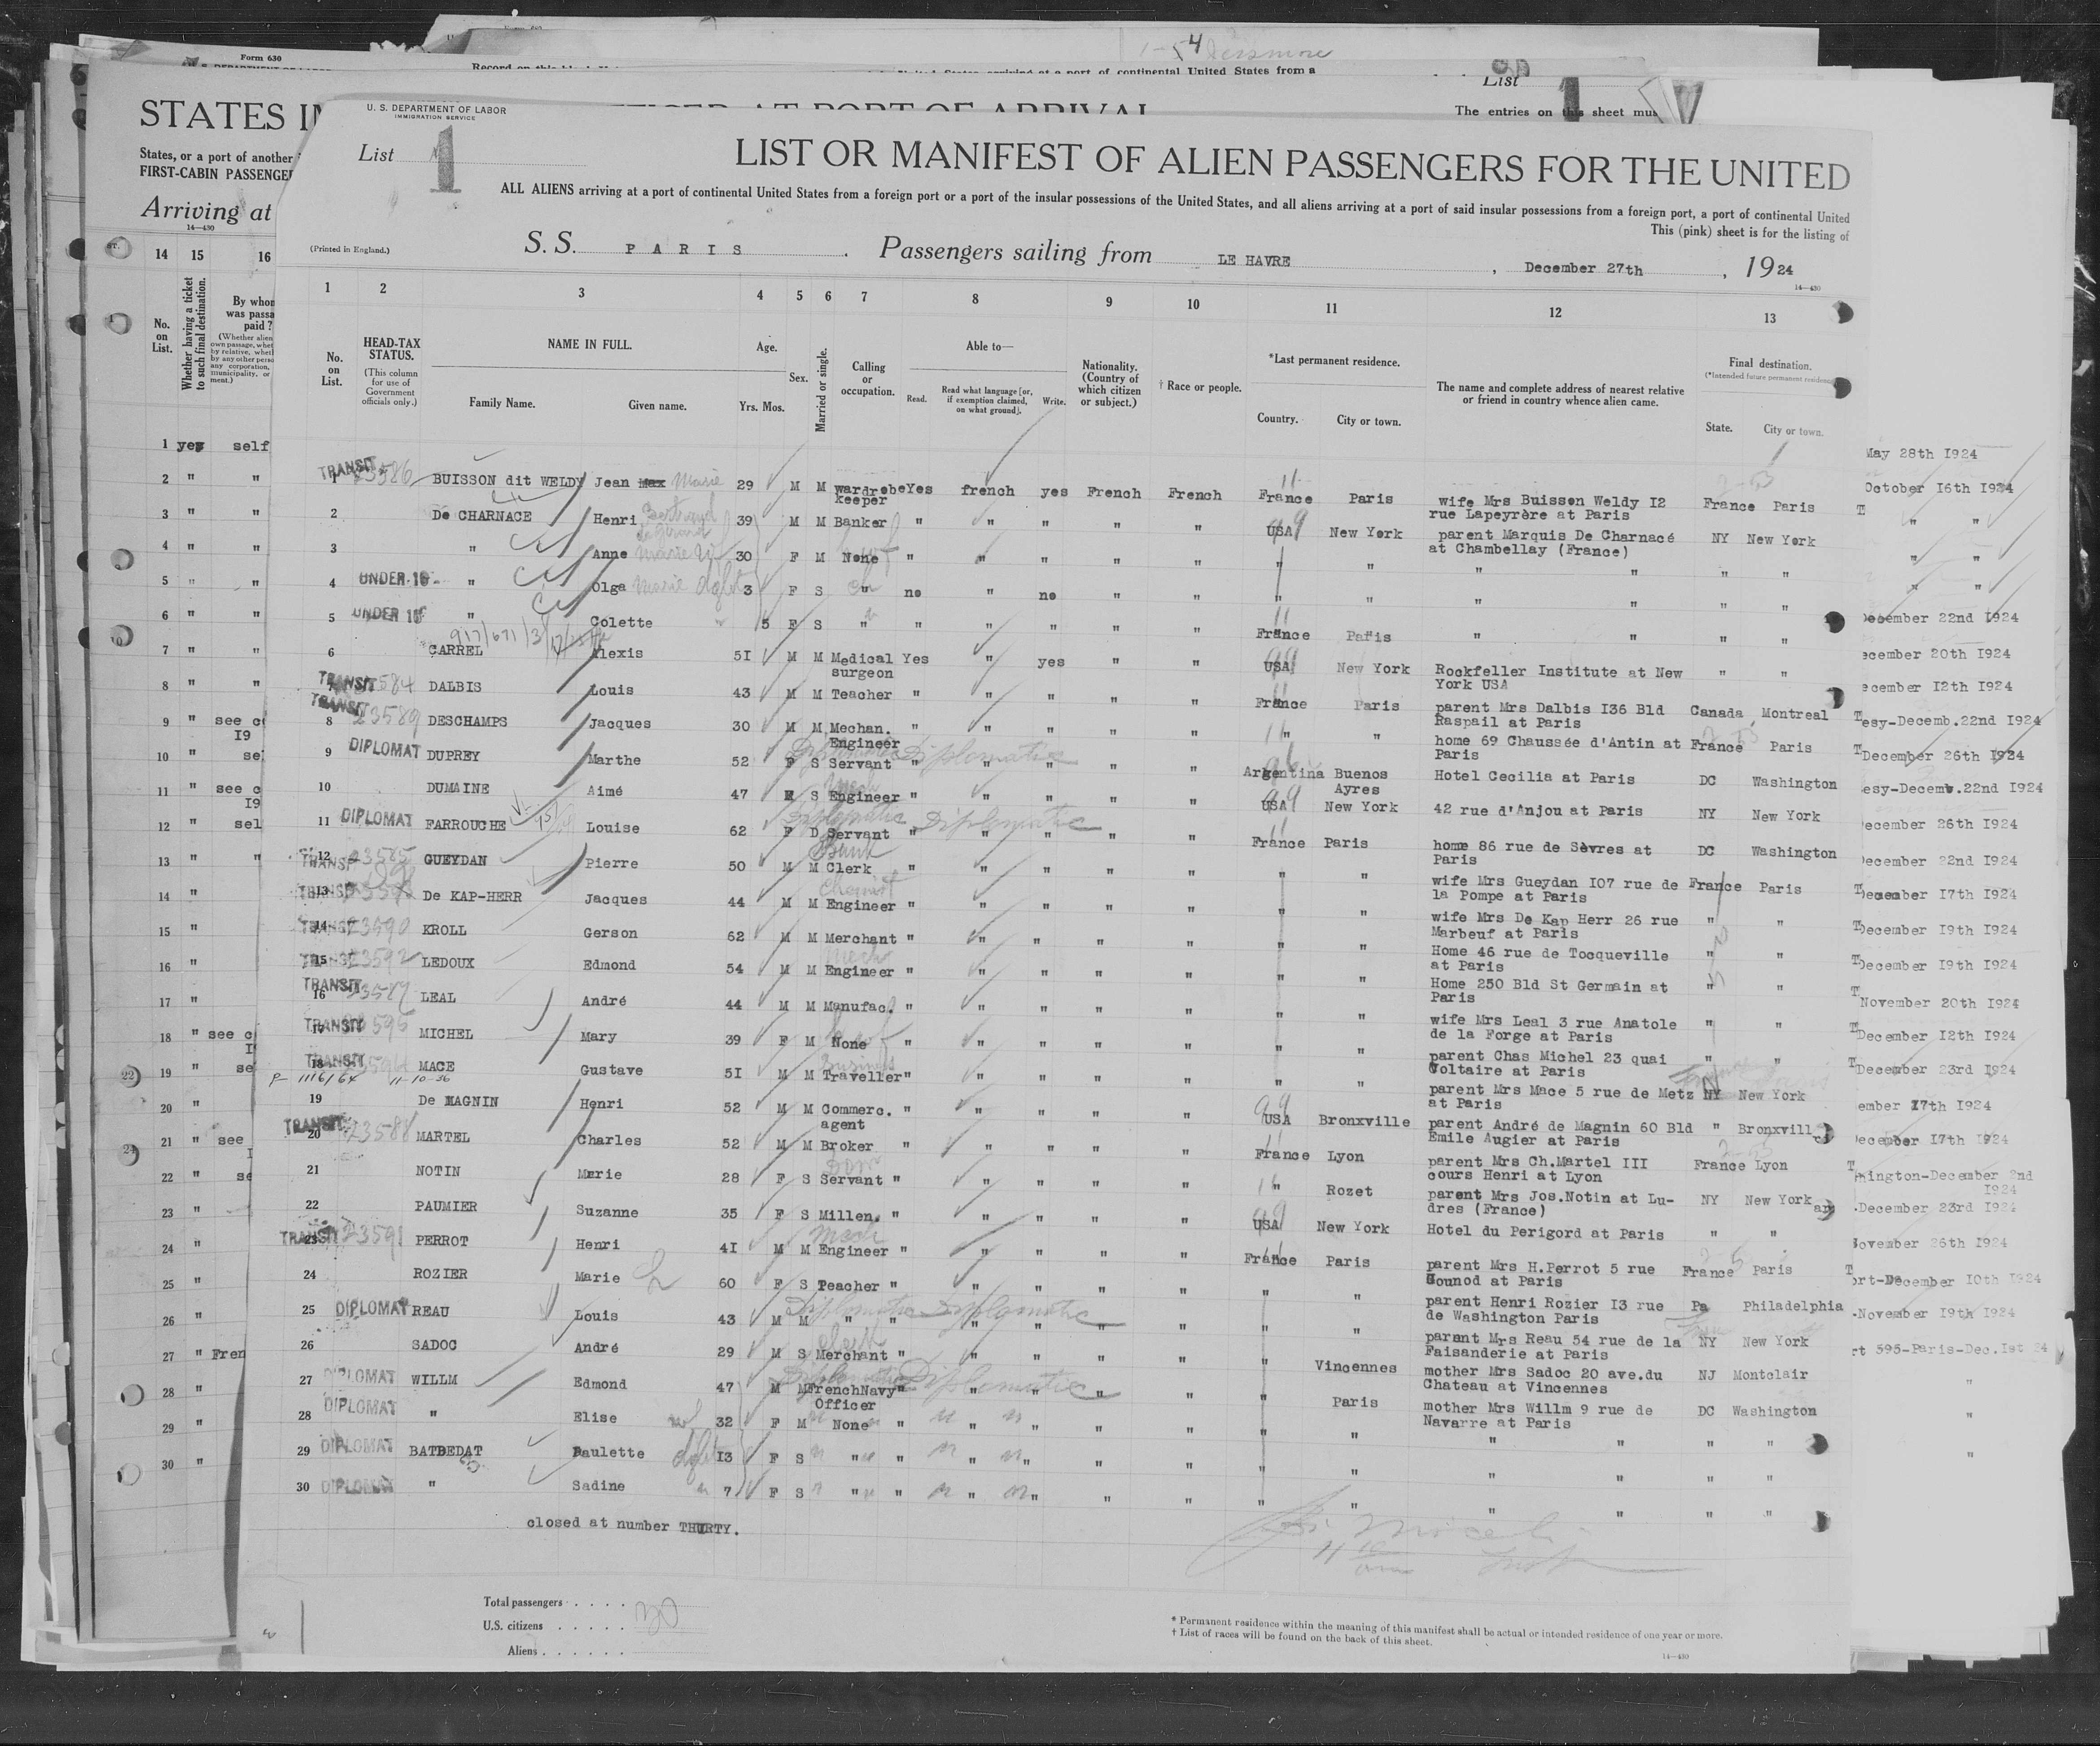 Form 630
List
STATES IN
States, or a port of another
FIRST-CABIN PASSENGER
Arriving at
14—430
The entries on this sheet mus
U. S. DEPARTMENT OF LABOR
IMMIGRATION SERVICE
List 1
LIST OR MANIFEST OF ALIEN PASSENGERS FOR THE UNITED
ALL ALIENS arriving at a port of continental United States from a foreign port or a port of the insular possessions of the United States, and all aliens arriving at a port of said insular possessions from a foreign port, a port of continental United
This (pink) sheet is for the listing of
(Printed in England.)
S. S. PARIS. Passengers sailing from LE HAVRE, December 27th, 1924
14—430
1 2 3 4 5 6 7 8 9 10 11 12 13
No. on List.
HEAD-TAX STATUS.
(This column for use of Government officials only.)
NAME IN FULL.
Family Name. Given name.
Age.
Yrs. Mos.
Sex.
Married or single.
Calling or occupation.
Able to—
Read. Read what language [or, if exemption claimed, on what ground]. Write.
Nationality. (Country of which citizen or subject.)
† Race or people.
*Last permanent residence.
Country. City or town.
The name and complete address of nearest relative or friend in country whence alien came.
Final destination.
(*Intended future permanent residence)
State. City or town.
1 TRANSIT 23586 BUISSON dit WELDY Jean Max Marie 29 M M wardrobe keeper Yes french yes French French France Paris wife Mrs Buisson Weldy I2 rue Lapeyrère at Paris France Paris
2 De CHARNACE Henri 39 M M Banker " " " " " USA New York parent Marquis De Charnacé at Chambellay (France) NY New York
3 " Anne 30 F M None " " " " " " " " " " "
4 UNDER 16 " Olga 3 F S " no " no " " " " " " " "
5 UNDER 16 " Colette 5 F S " " " " " " France Paris " " " "
6 CARREL Alexis 5I M M Medical surgeon Yes " yes " " USA New York Rockfeller Institute at New York USA " "
7 TRANSIT DALBIS Louis 43 M M Teacher " " " " " France Paris parent Mrs Dalbis I36 Bld Raspail at Paris Canada Montreal
8 TRANSIT 23589 DESCHAMPS Jacques 30 M M Mechan. Engineer " " " " " " " home 69 Chaussée d'Antin at Paris France Paris
9 DIPLOMAT DUPREY Marthe 52 F S Servant Diplomatic " " " " " Argentina Buenos Ayres Hotel Cecilia at Paris DC Washington
10 DUMAINE Aimé 47 M S Engineer " " " " " USA New York 42 rue d'Anjou at Paris NY New York
11 DIPLOMAT FARROUCHE Louise 62 F D Servant Diplomatic " " " " " France Paris home 86 rue de Sèvres at Paris DC Washington
12 TRANSIT 23585 GUEYDAN Pierre 50 M M Bank Clerk " " " " " " " wife Mrs Gueydan I07 rue de la Pompe at Paris France Paris
13 TRANSIT De KAP-HERR Jacques 44 M M Engineer " " " " " " " wife Mrs De Kap Herr 26 rue Marbeuf at Paris " "
14 TRANSIT 23590 KROLL Gerson 62 M M Merchant " " " " " " " Home 46 rue de Tocqueville at Paris " "
15 TRANSIT 23592 LEDOUX Edmond 54 M M Engineer " " " " " " " Home 250 Bld St Germain at Paris " "
16 TRANSIT LEAL André 44 M M Manufac. " " " " " " " wife Mrs Leal 3 rue Anatole de la Forge at Paris " "
17 TRANSIT MICHEL Mary 39 F M None " " " " " " " parent Chas Michel 23 quai Voltaire at Paris " "
18 TRANSIT MACE Gustave 5I M M Traveller " " " " " " " parent Mrs Mace 5 rue de Metz at Paris NY New York
19 De MAGNIN Henri 52 M M Commerc. agent " " " " " USA Bronxville parent André de Magnin 60 Bld Emile Augier at Paris " Bronxvill
20 TRANSIT 23588 MARTEL Charles 52 M M Broker " " " " " France Lyon parent Mrs Ch.Martel III cours Henri at Lyon France Lyon
21 NOTIN Marie 28 F S Servant " " " " " " Rozet parent Mrs Jos.Notin at Ludres (France) NY New York
22 PAUMIER Suzanne 35 F S Millen. " " " " " USA New York Hotel du Perigord at Paris " "
23 TRANSIT 23591 PERROT Henri 4I M M Engineer " " " " " France Paris parent Mrs H.Perrot 5 rue Gounod at Paris France Paris
24 ROZIER Marie 60 F S Teacher " " " " " " " parent Henri Rozier I3 rue de Washington Paris Pa Philadelphia
25 DIPLOMAT REAU Louis 43 M M " Diplomatic " " " " " " " parent Mrs Reau 54 rue de la Faisanderie at Paris NY New York
26 SADOC André 29 M S Merchant " " " " " " Vincennes mother Mrs Sadoc 20 ave.du Chateau at Vincennes NJ Montclair
27 DIPLOMAT WILLM Edmond 47 M M FrenchNavy Officer Diplomatic " " " " " " Paris mother Mrs Willm 9 rue de Navarre at Paris DC Washington
28 DIPLOMAT " Elise 32 F M None " " " " " " " " " " "
29 DIPLOMAT BATBEDAT Paulette I3 F S " " " " " " " " " " " "
30 DIPLOMAT " Sadine 7 F S " " " " " " " " " " " "
closed at number THIRTY.
Total passengers . . . .
U.S. citizens . . . . . 30
Aliens . . . . . .
* Permanent residence within the meaning of this manifest shall be actual or intended residence of one year or more.
† List of races will be found on the back of this sheet.
14—430
14 15 16
No. on List.
Whether having a ticket to such final destination.
By whom was passa paid?
1 yes self
2 " "
3 " "
4 " "
5 " "
6 " "
7 " "
8 " "
9 " see c I9
10 " se
11 " see c I9
12 " sel
13 " "
14 "
15 "
16 "
17 "
18 " see c
19 " se
20 "
21 " see
22 " se
23 "
24 "
25 "
26 "
27 " Fren
28 "
29 "
30 "
May 28th I924
October I6th I924
" "
" "
" "
December 22nd I924
ecember 20th I924
ecember I2th I924
esy-Decemb.22nd I924
December 26th I924
esy-Decemb.22nd I924
ecember 26th I924
ecember 22nd I924
December I7th I924
December I9th I924
December I9th I924
November 20th I924
December I2th I924
December 23rd I924
ember I7th I924
ecember I7th I924
hington-December 2nd I924
-December 23rd I924
November 26th I924
ort-December I0th I924
-November I9th I924
rt 595-Paris-Dec.Ist 24
"
"
"